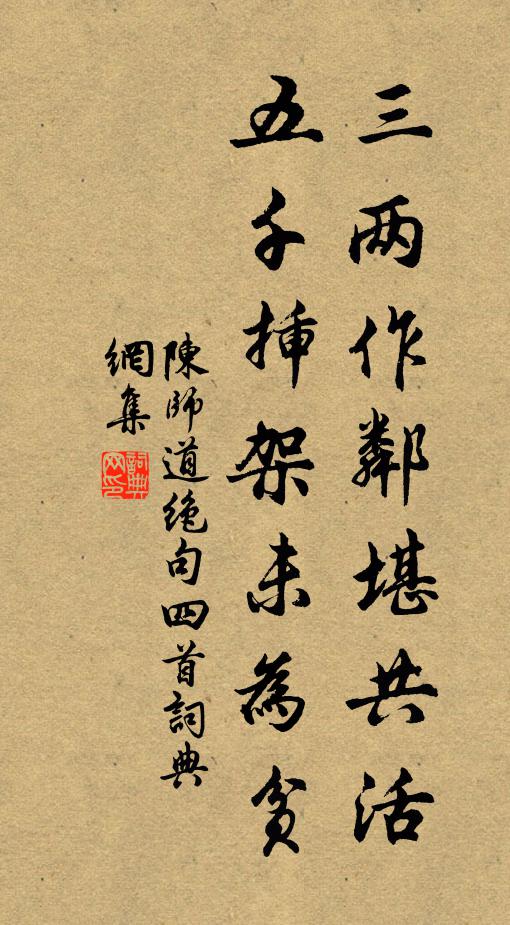 三两作鄰堪共活
五千插架未為貧
陳師道絶句四首詞典
網集
詞典
网印